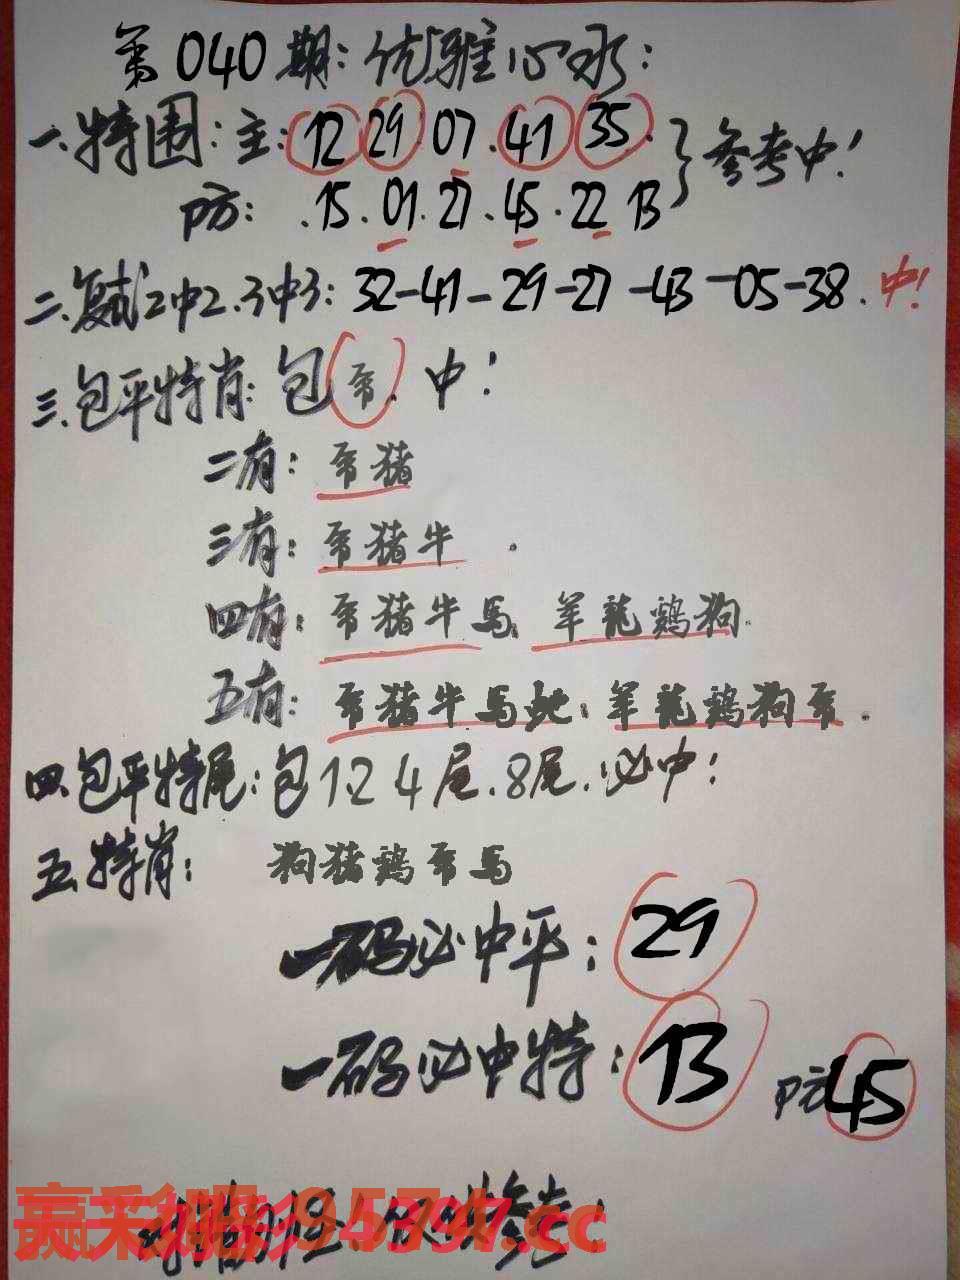 第040期:优雅心水:
一.特围:主:12 29.07.41 35.
防: .15.01.27.45.22 13 }参考中!
二.复试2中2.3中3:32-41-29-27-43-05-38.中!
三.包平特肖:包帝.中!
二有:帝猪
三有:帝猪牛.
四有:帝猪牛马.羊龍鷄狗.
五有:帝猪牛马蛇.羊龍鷄狗帝.
四.包平特尾:包1.2 4尾.8尾.必中!
五.特肖: 狗猪鷄帝马
一码必中平:29
一码必中特:13 防45
仅供参考!